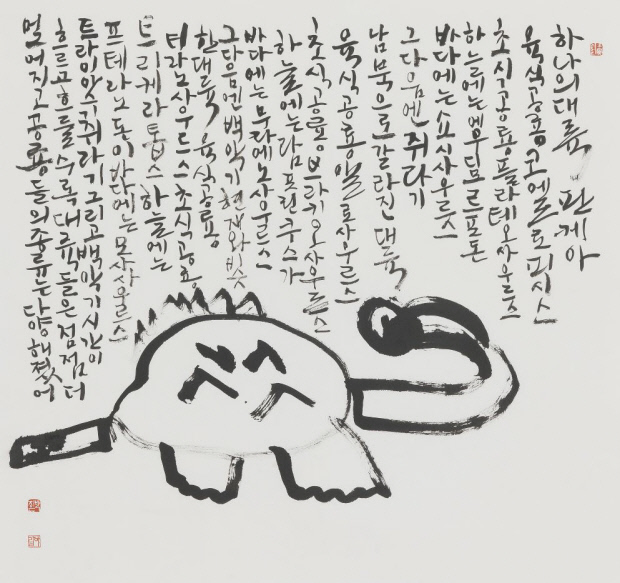 하나의 대륙 판게아
육식공룡 코엘로피시스
초식공룡 플라테오사우르스
하늘에는 에우디모르포돈
바다에는 쇼시사우르스
그 다음엔 쥐라기
남북으로 갈라진 대륙
육식공룡 알로사우르스
초식공룡 브라키오사우르스
하늘에는 람포린쿠스가
바다에는 무라에노사우르스
그 다음엔 백악기 현재와 비슷
한 대륙 육식공룡
티라노사우르스 초식공룡
트리케라톱스 하늘에는
프테라노돈이 바다에는 모사사우르스
트라이아스 쥐라기 그리고 백악기 시간이
흐르고 흐를수록 대륙들은 점점 더
멀어지고 공룡들의 종류는 다양해졌어